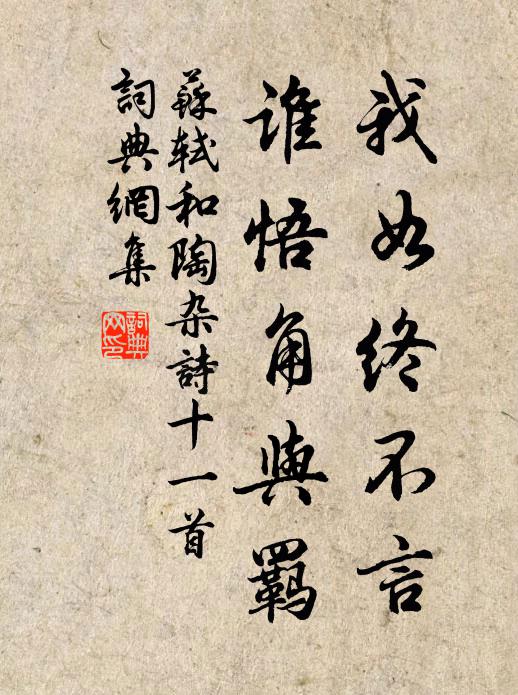 我如终不言
谁悟角與羈
蘇轼和陶杂詩十一首
詞典網集
詞典
网印